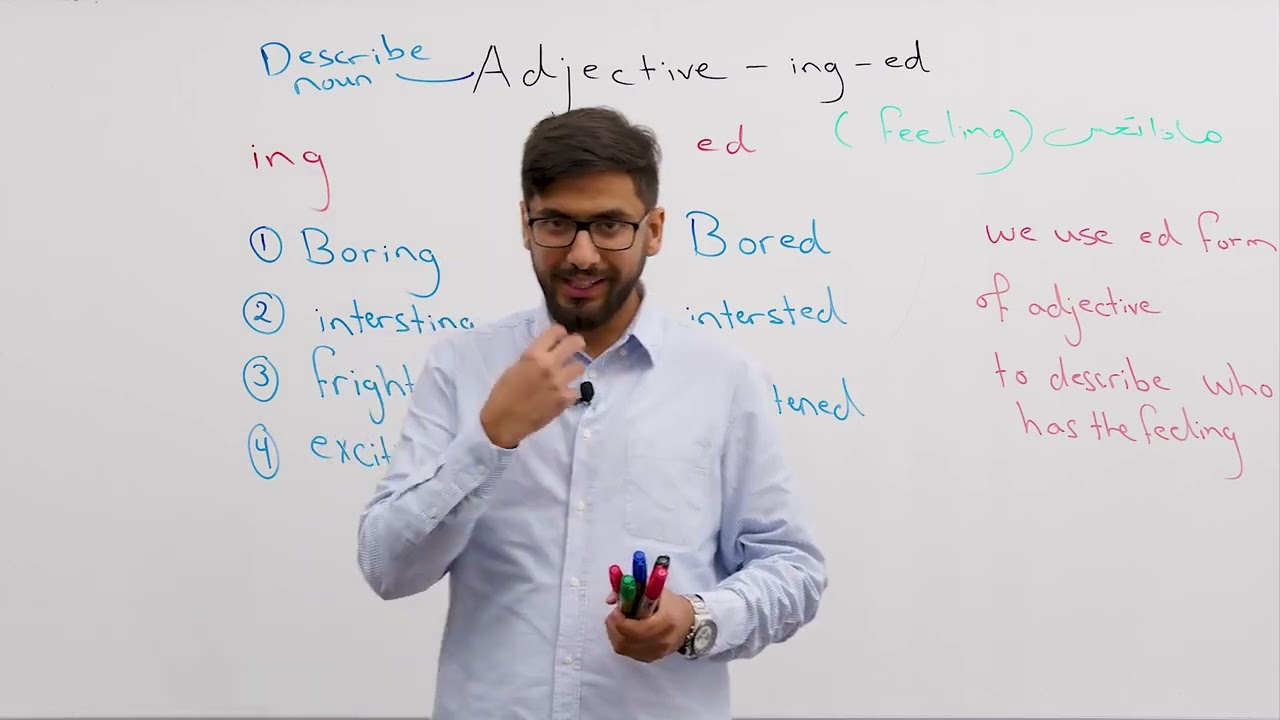 Describe
noun
Adjective - ing - ed
ing
ed
(feeling) ماذا تحس
① Boring
Bored
② intersting
intersted
③ fright
tened
④ excit
we use ed form
of adjective
to describe who
has the feeling